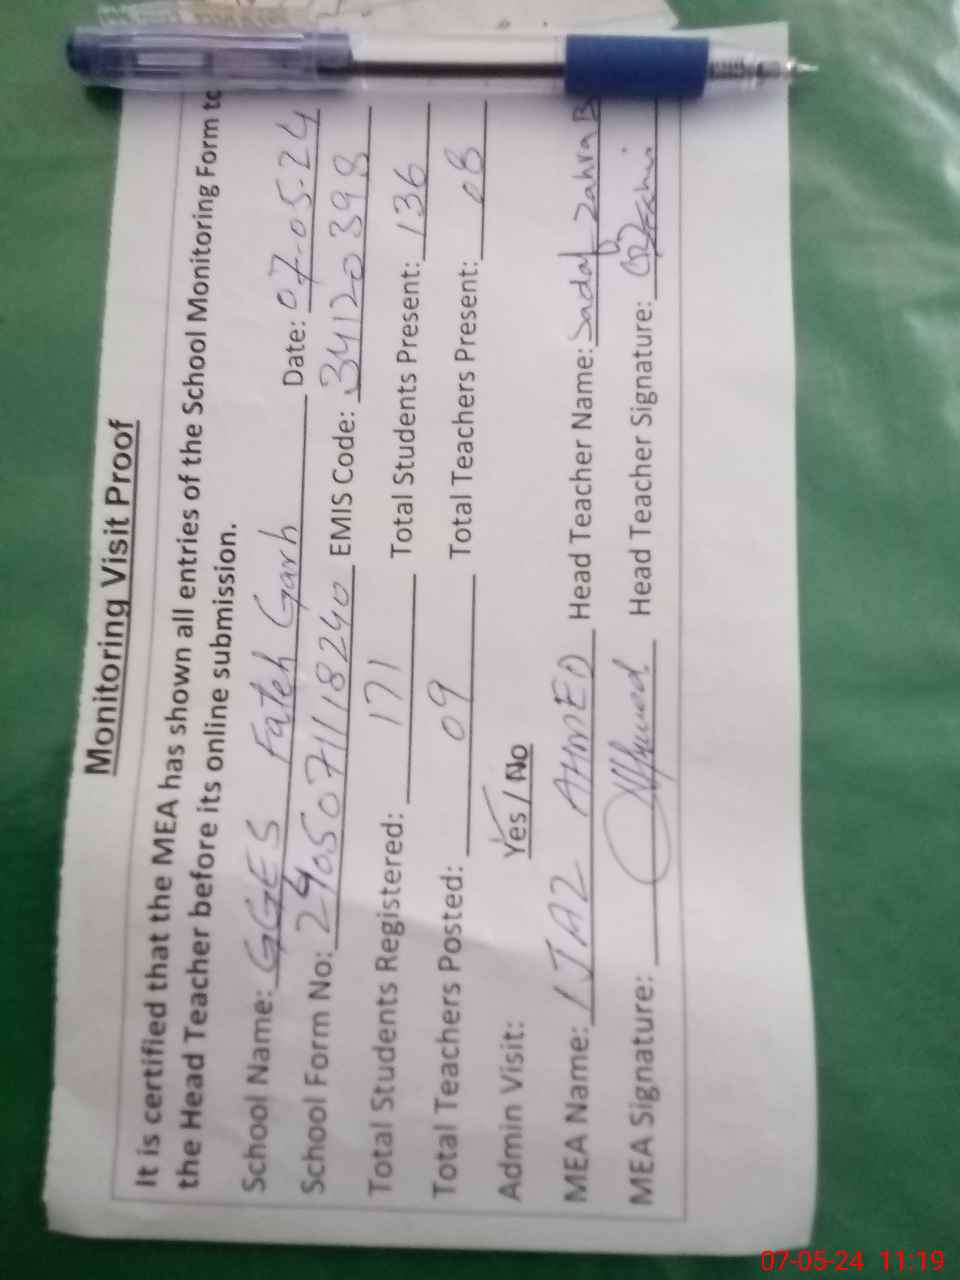 Monitoring Visit Proof
It is certified that the MEA has shown all entries of the School Monitoring Form to
the Head Teacher before its online submission.
School Name: GGES Fateh Garh Date: 07-05-24
School Form No: 2405071118240 EMIS Code: 34120398
Total Students Registered: 171 Total Students Present: 136
Total Teachers Posted: 09 Total Teachers Present: 08
Admin Visit: Yes / No
MEA Name: IJAZ AHMED Head Teacher Name: Sadaf Zahra B
MEA Signature: Head Teacher Signature:
07-05-24 11:19